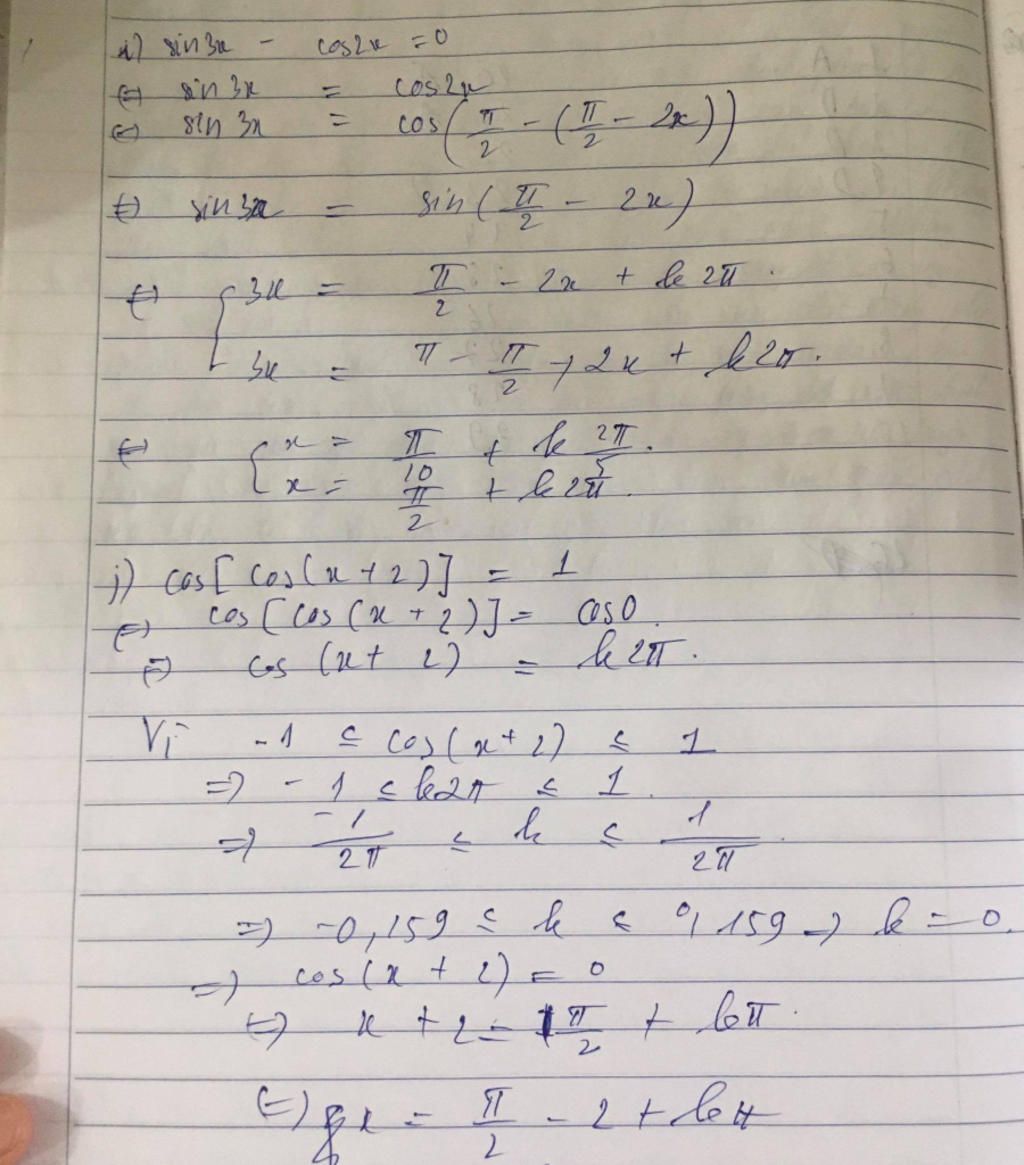 i) sin3x - cos2x = 0
⇔ sin3x = cos2x
⇔ sin3x = cos(π/2 - (π/2 - 2x))
⇔ sin3x = sin(π/2 - 2x)
⇔ { 3x = π/2 - 2x + k2π.
3x = π - π/2 + 2x + k2π.
⇔ { x = π/10 + k 2π/5.
x = π/2 + k2π.
j) cos[cos(x+2)] = 1
⇔ cos[cos(x+2)] = cos0.
⇔ cos(x+2) = k2π.
Vì -1 ≤ cos(x+2) ≤ 1
⇒ -1 ≤ k2π ≤ 1.
⇒ -1/2π ≤ k ≤ 1/2π.
⇒ -0,159 ≤ k ≤ 0,159 ⇒ k = 0.
⇒ cos(x+2) = 0
⇔ x + 2 = π/2 + kπ.
⇔ x = π/2 - 2 + kπ